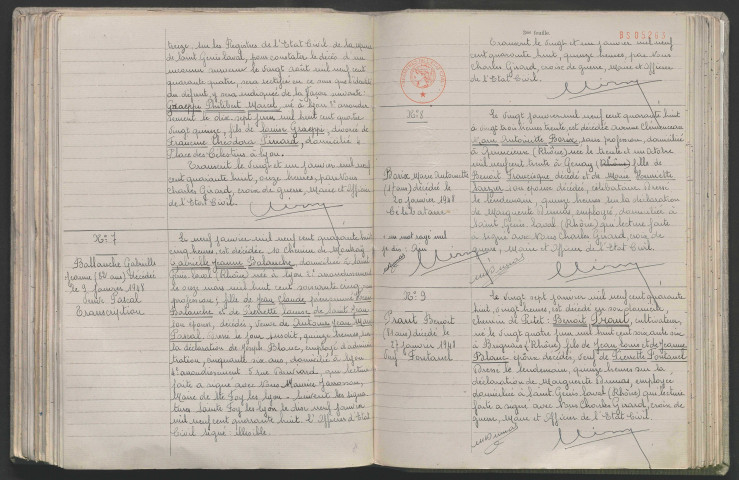 sur les Registres de l'Etat Civil de la mairie
de Saint Genis Laval, pour constater le décès d'un
inconnu survenu le vingt août mil neuf cent
quarante quatre, sera rectifié en ce sens que l'identité
du défunt y sera indiquée de la façon suivante :
Graeppi Philibert Marcel, né à Lyon 2e arrondis-
sement le dix sept juin mil huit cent quatre
vingt quinze, fils de Louise Graeppi, divorcé de
Francine Théodora Pinard, domicilié 2
Place des Célestins à Lyon.
Transcrit le vingt et un janvier mil neuf
cent quarante huit, onze heures, par Nous
Charles Girard, croix de guerre, Maire et Officier
de l'Etat Civil.
N° 7
Ballanche Gabrielle
Jeanne (82 ans) décédée
le 9 Janvier 1948
Veuve Parat
Transcription
Le neuf janvier mil neuf cent quarante huit
cinq heures, est décédée, 10 Chemin de Montray
Gabrielle Jeanne Balanche, domiciliée à Saint
Genis Laval (Rhône) née à Lyon 2e arrondissement
le onze mai mil huit cent soixante cinq, sans
profession ; fille de Jean Claude
Balanche et de Pierrette Louise
son épouse, décédés, Veuve de Antoine Jean Marie
Dressé le jour susdit, quinze heures, sur
la déclaration de Joseph Blanc, employé d'adminis-
tration, cinquante six ans, domicilié à Lyon
qui lecture
faite a signé avec Nous Maurice
Maire de Ste Foy les Lyon - Suivent les signa-
tures Sainte Foy les Lyon, le dix neuf janvier
mil neuf cent quarante huit. L'Officier d'Etat
Civil signé illisible.
2me feuillet
BS 05263
Transcrit le vingt et un janvier mil neuf
cent quarante huit, quinze heures, par Nous
Charles Girard, croix de guerre, Maire et Officier
de l'Etat Civil.
N° 8
Marie Antoinette
(17 ans) décédée le
20 Janvier 1948
Célibataire
un mot rayé nul
Le vingt janvier mil neuf cent quarante huit
à vingt trois heures trente, est décédée avenue Clémenceau
Marie Antoinette, sans profession, domiciliée
à (Rhône) née le trente et un octobre
mil neuf cent trente à Genay (Rhône) fille de
Benoit décédé et de Marie Henriette
son épouse décédée, célibataire. Dressé
le lendemain, quinze heures sur la déclaration
de Marguerite Dumas employée, domiciliée à
Saint Genis Laval (Rhône) qui lecture faite
a signé avec Nous Charles Girard, croix de
guerre, Maire et Officier de l'Etat Civil.
N° 9
Benoit
décédé le
27 Janvier 1948
Veuf Fontanel
Le vingt sept janvier mil neuf cent quarante
huit, vingt heures, est décédé en son domicile,
chemin de : Benoit, cultivateur,
né le vingt quatre juin mil huit cent soixante six
à Brignais (Rhône) fils de Jean Louis et de Jeanne
décédés, Veuf de Pierrette Fontanel
Dressé le lendemain, quinze heures sur la
déclaration de Marguerite Dumas, employée
domiciliée à Saint Genis Laval (Rhône) qui lecture
faite a signé avec Nous Charles Girard, croix de
guerre, Maire et Officier de l'Etat Civil.